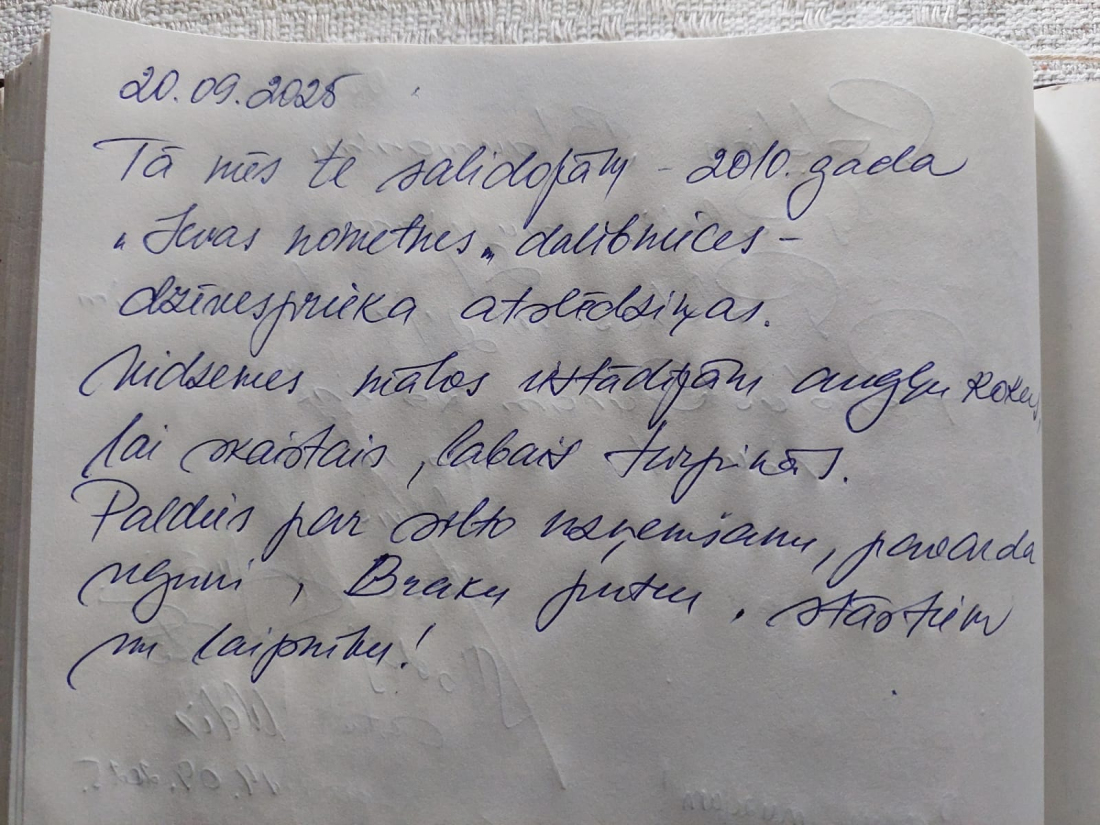 20.09.2025
Tā mēs te salidojām - 2010. gada
"Ievas nometnes" dalībnieces -
dzīvesprieka atslēdziņas.
Vidzemes mālos iestādījām augļu kokus,
lai skaistais, labais turpinās.
Paldies par silto uzņemšanu, pavarda
uguni, Braku putru, stāstiem
un laipnību!